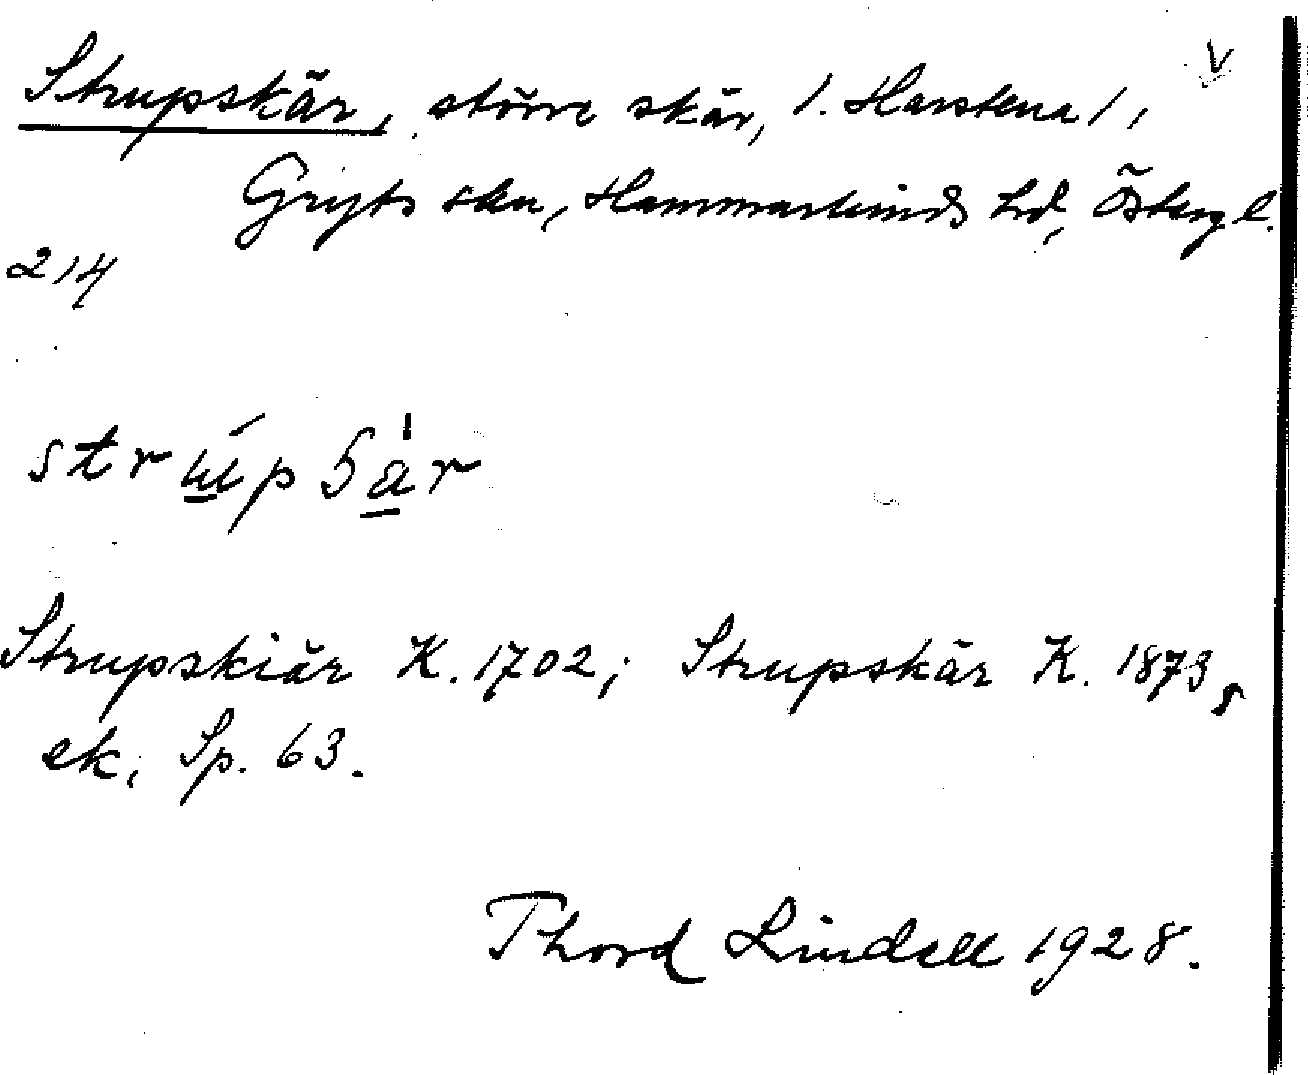 Strupskär, större skär, /. Harstena /,
Gryts skn, Hammarkinds hd, Östergl.
214
Strupskiär K. 1702; Strupskär K. 1873,
ek. Sp. 63.
Thord Lindell 1928.